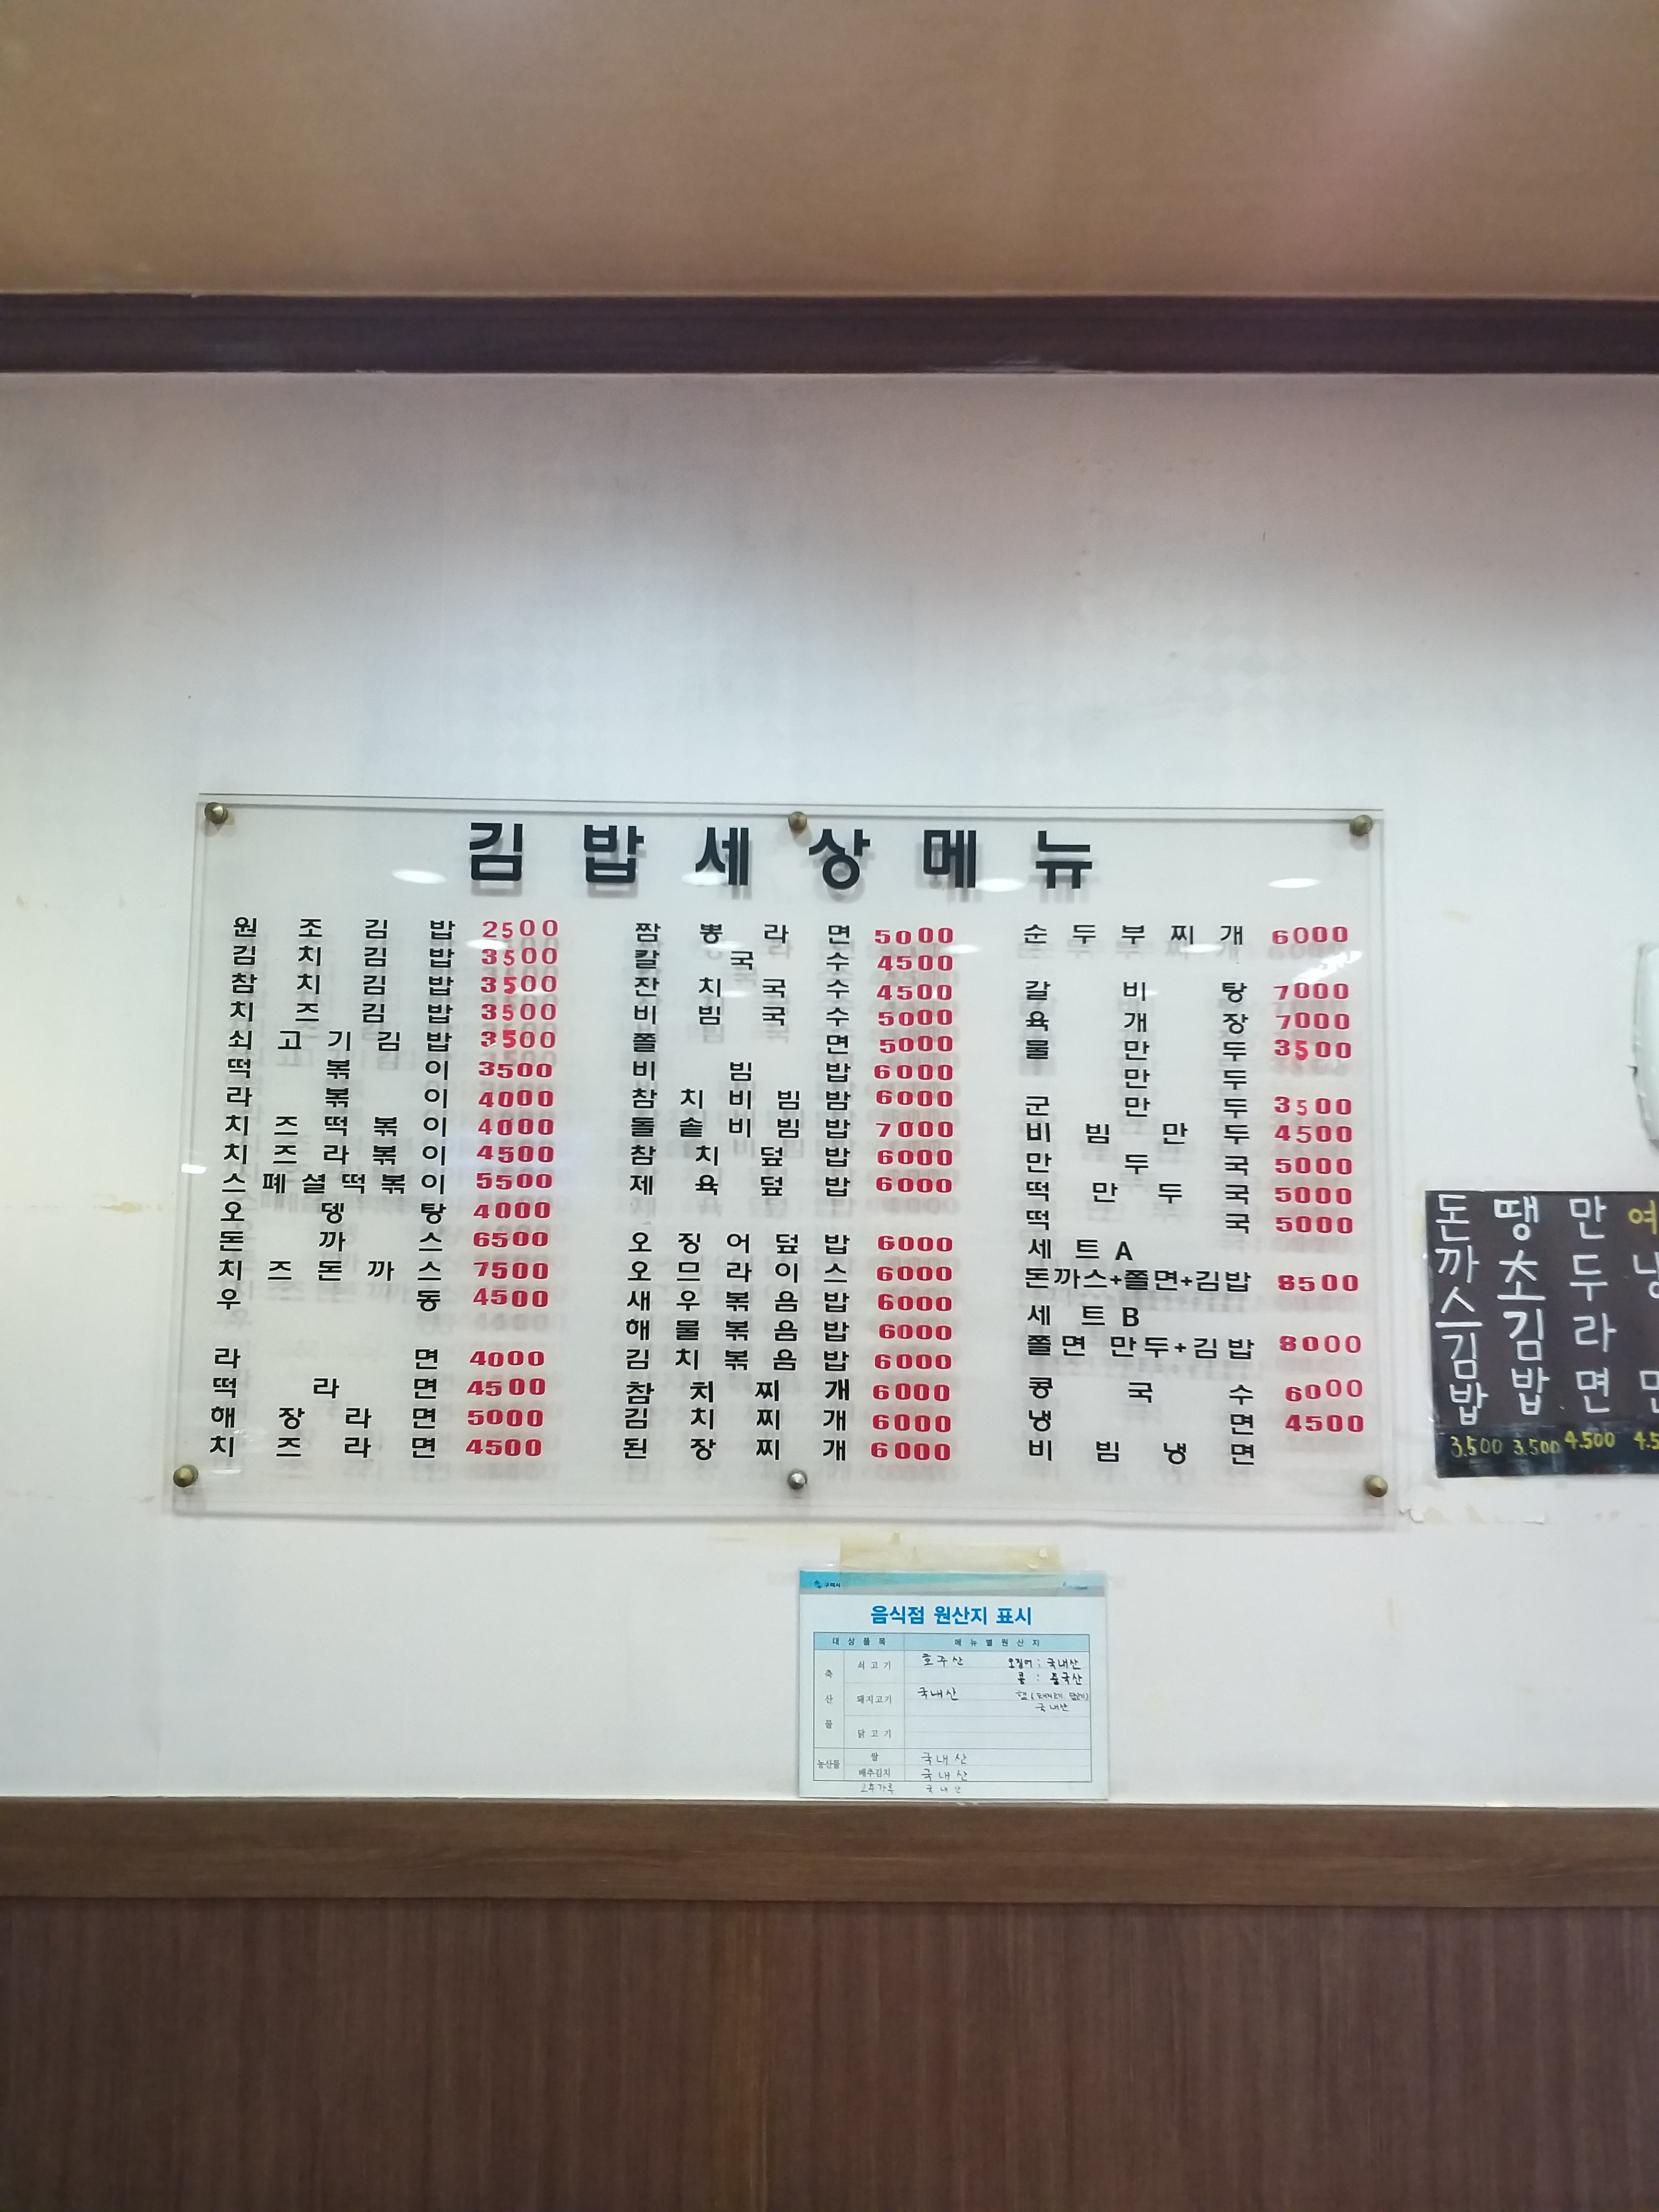 김밥세상메뉴
원조김밥 2500
김치김밥 3500
참치김밥 3500
치즈김밥 3500
쇠고기김밥 3500
떡볶이 3500
라볶이 4000
치즈떡볶이 4000
치즈라볶이 4500
스폐셜떡볶이 5500
오뎅탕 4000
돈까스 6500
치즈돈까스 7500
우동 4500
라면 4000
떡라면 4500
해장라면 5000
치즈라면 4500
짬뽕라면 5000
칼국수 4500
잔치국수 4500
비빔국수 5000
쫄면 5000
비빔밥 6000
참치비빔밤 6000
돌솥비빔밥 7000
참치덮밥 6000
제육덮밥 6000
오징어덮밥 6000
오므라이스 6000
새우볶음밥 6000
해물볶음밥 6000
김치볶음밥 6000
참치찌개 6000
김치찌개 6000
된장찌개 6000
순두부찌개 6000
갈비탕 7000
육개장 7000
물만두 3500
만두
군만두 3500
비빔만두 4500
만두국 5000
떡만두국 5000
떡국 5000
세트A
돈까스+쫄면+김밥 8500
세트B
쫄면 만두+김밥 8000
콩국수 6000
냉면 4500
비빔냉면
돈까스김밥 3.500
땡초김밥 3.500
만두라면 4.500
구리시
음식점 원산지 표시
대상품목 메뉴별원산지
축산물
쇠고기 호주산
오징어: 국내산
콩: 중국산
돼지고기 국내산
국내산
닭고기
농산물
쌀 국내산
배추김치 국내산
고추가루 국내산